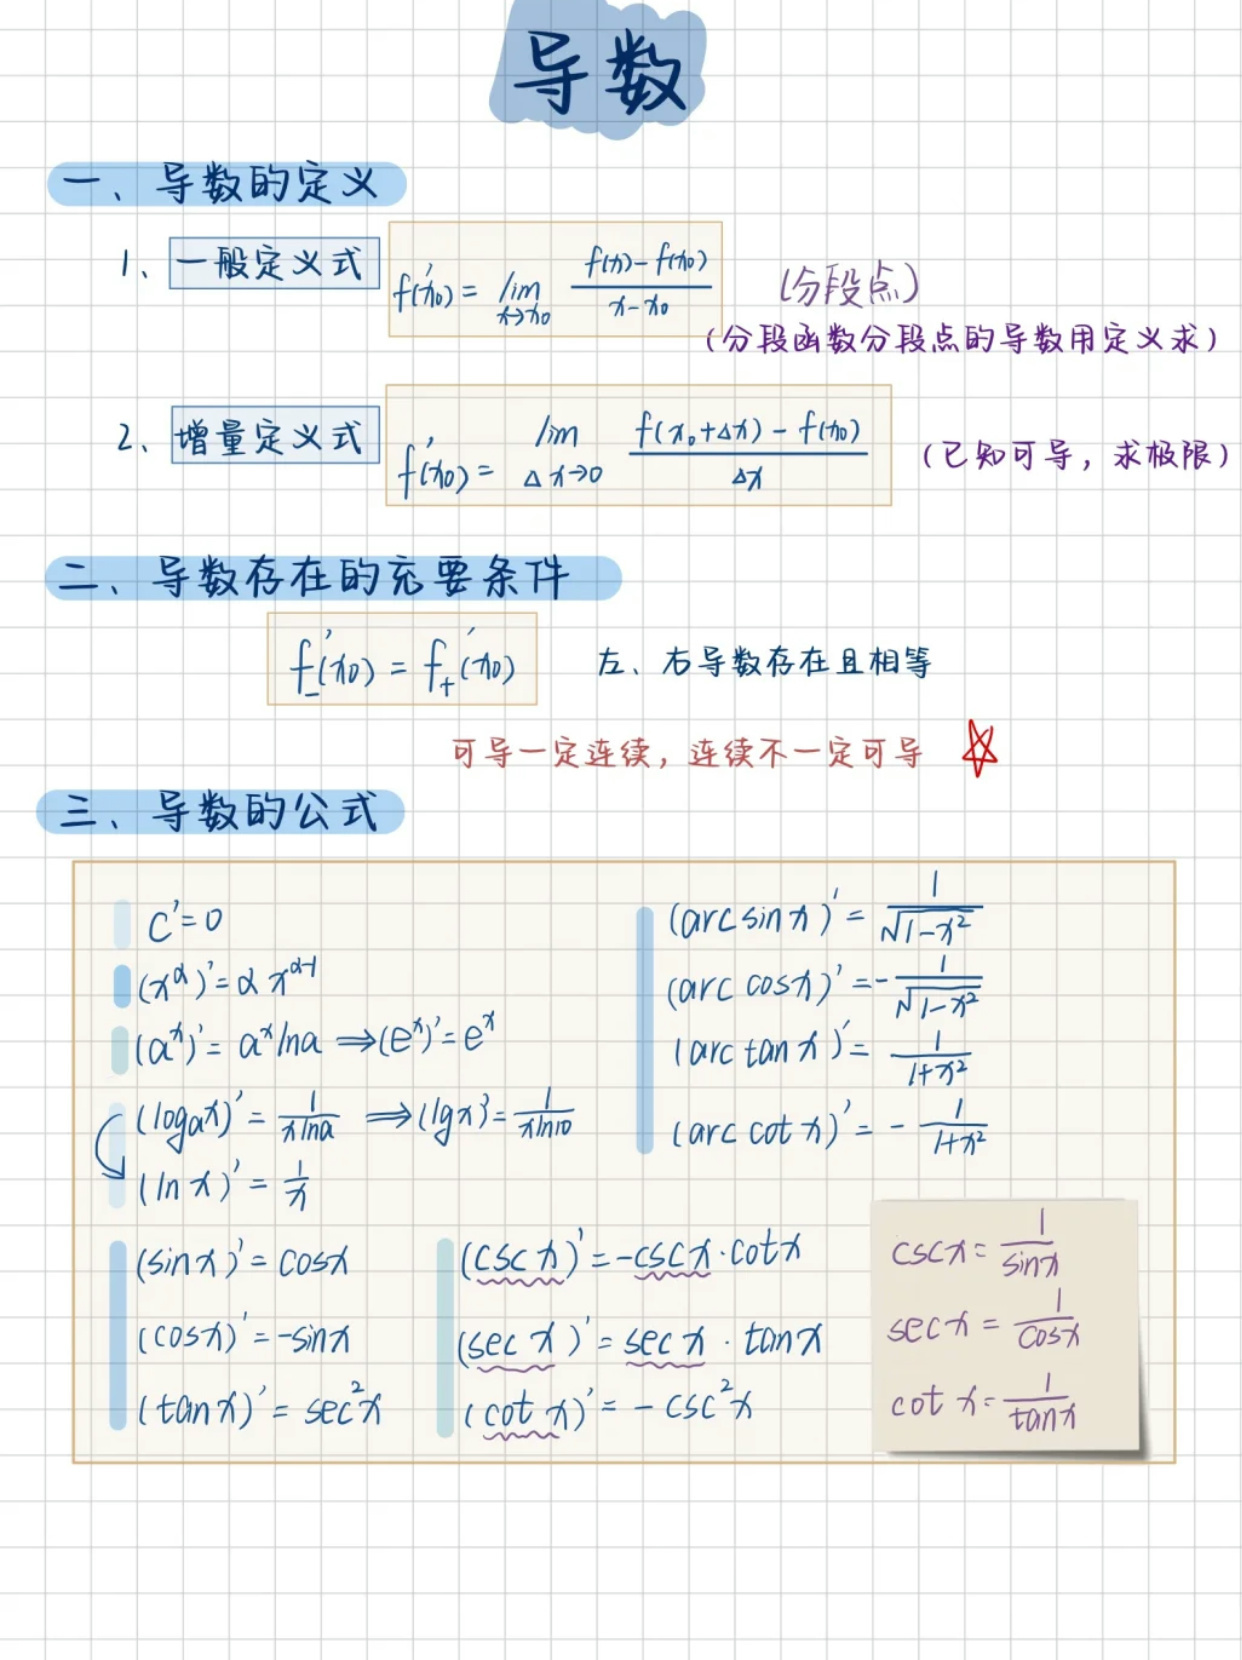 导数
一、导数的定义
1、一般定义式 f'(x₀) = lim x→x₀ (f(x)-f(x₀))/(x-x₀) (分段点)
(分段函数分段点的导数用定义求)
2、增量定义式 f'(x₀) = lim Δx→0 (f(x₀+Δx)-f(x₀))/Δx (已知可导，求极限)
二、导数存在的充要条件
f₋'(x₀) = f₊'(x₀) 左、右导数存在且相等
可导一定连续，连续不一定可导
三、导数的公式
C'=0
(x^α)'=αx^(α-1)
(a^x)'=a^x lna ⇒(e^x)'=e^x
(logₐx)'=1/(xlna) ⇒(lgx)'=1/(xln10)
(lnx)'=1/x
(arcsinx)'=1/√(1-x²)
(arccosx)'=-1/√(1-x²)
(arctanx)'=1/(1+x²)
(arccotx)'=-1/(1+x²)
(sinx)'=cosx
(cosx)'=-sinx
(tanx)'=sec²x
(cscx)'=-cscx·cotx
(secx)'=secx·tanx
(cotx)'=-csc²x
cscx=1/sinx
secx=1/cosx
cotx=1/tanx